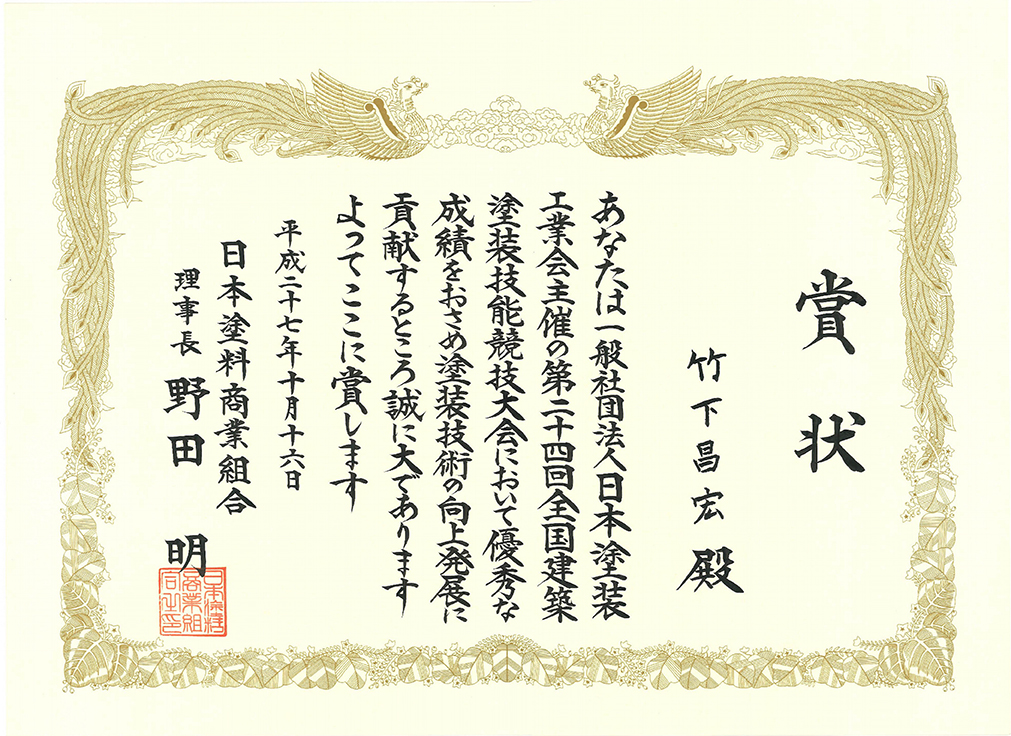 賞状
竹下昌宏殿
あなたは一般社団法人日本塗装
工業会主催の第二十四回全国建築
塗装技能競技大会において優秀な
成績をおさめ塗装技術の向上発展に
貢献するところ誠に大であります
よってここに賞します
平成二十七年十月十六日
日本塗料商業組合
理事長 野田 明